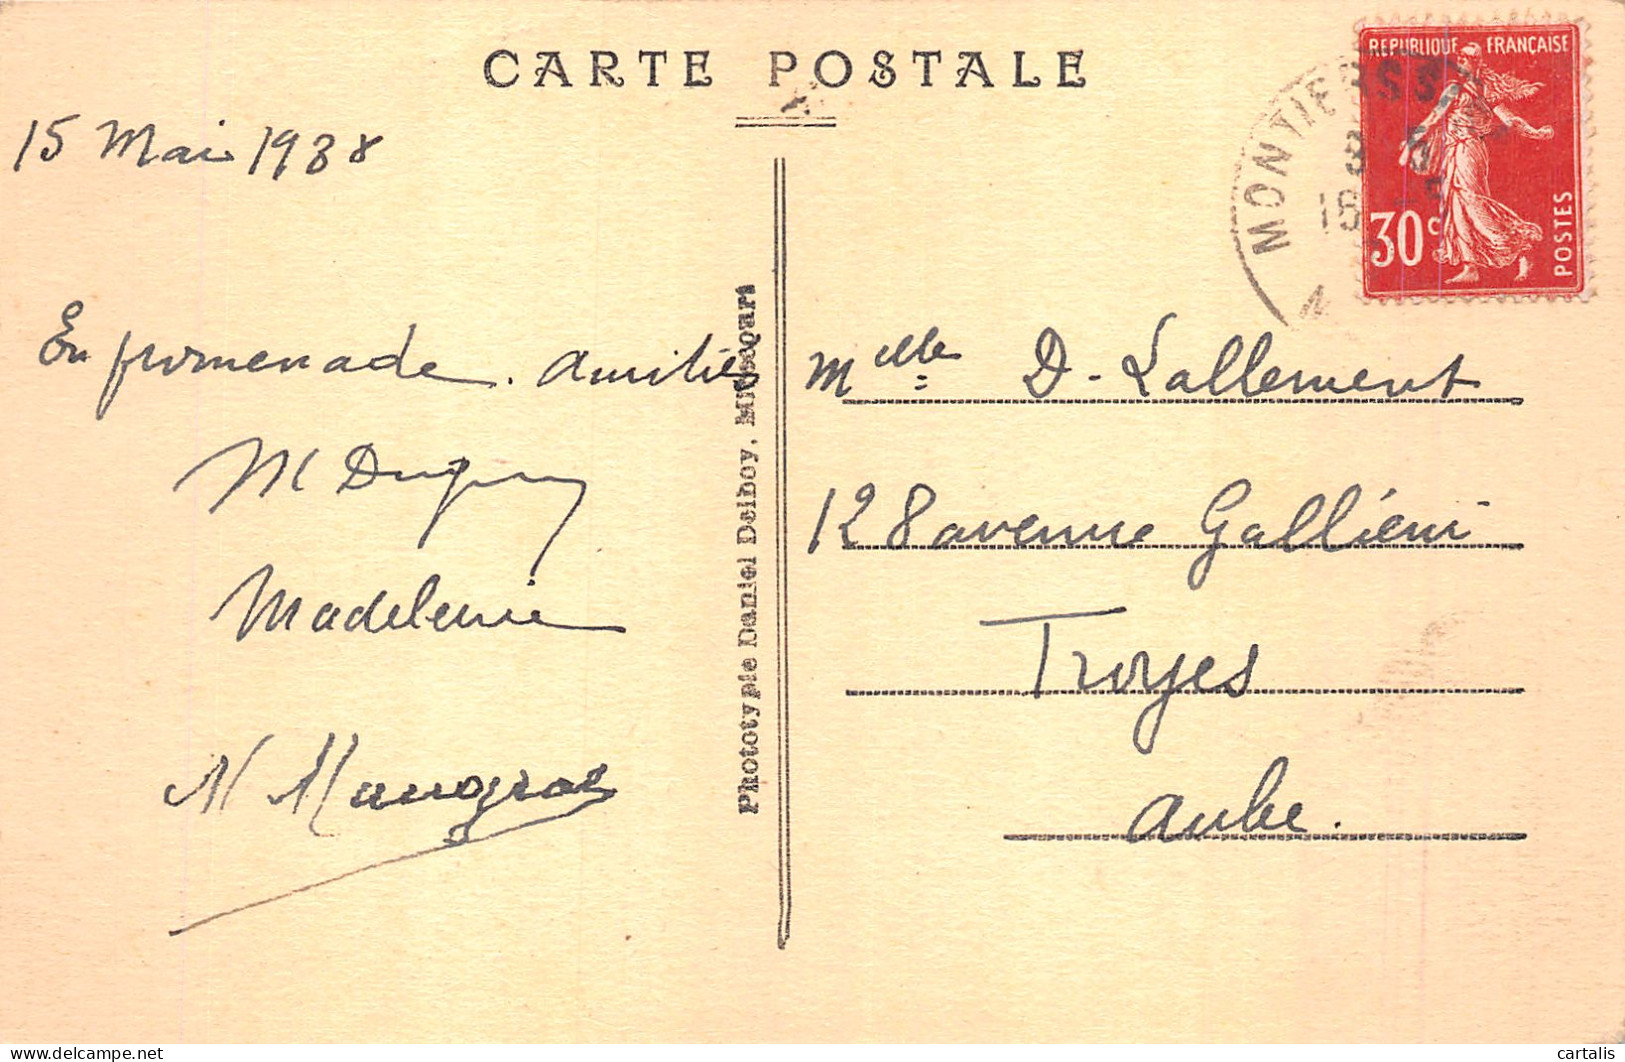 CARTE POSTALE
15 Mai 1938
En promenade. Amitiés
M Dupuy
Madeleine
M
Phototypie Daniel Delboy, Mirecourt
REPUBLIQUE FRANÇAISE
30c
POSTES
MONTIERS S
Melle D. Lallement
128 avenue Galliéni
Troyes
Aube.
delcampe.net
cartalis